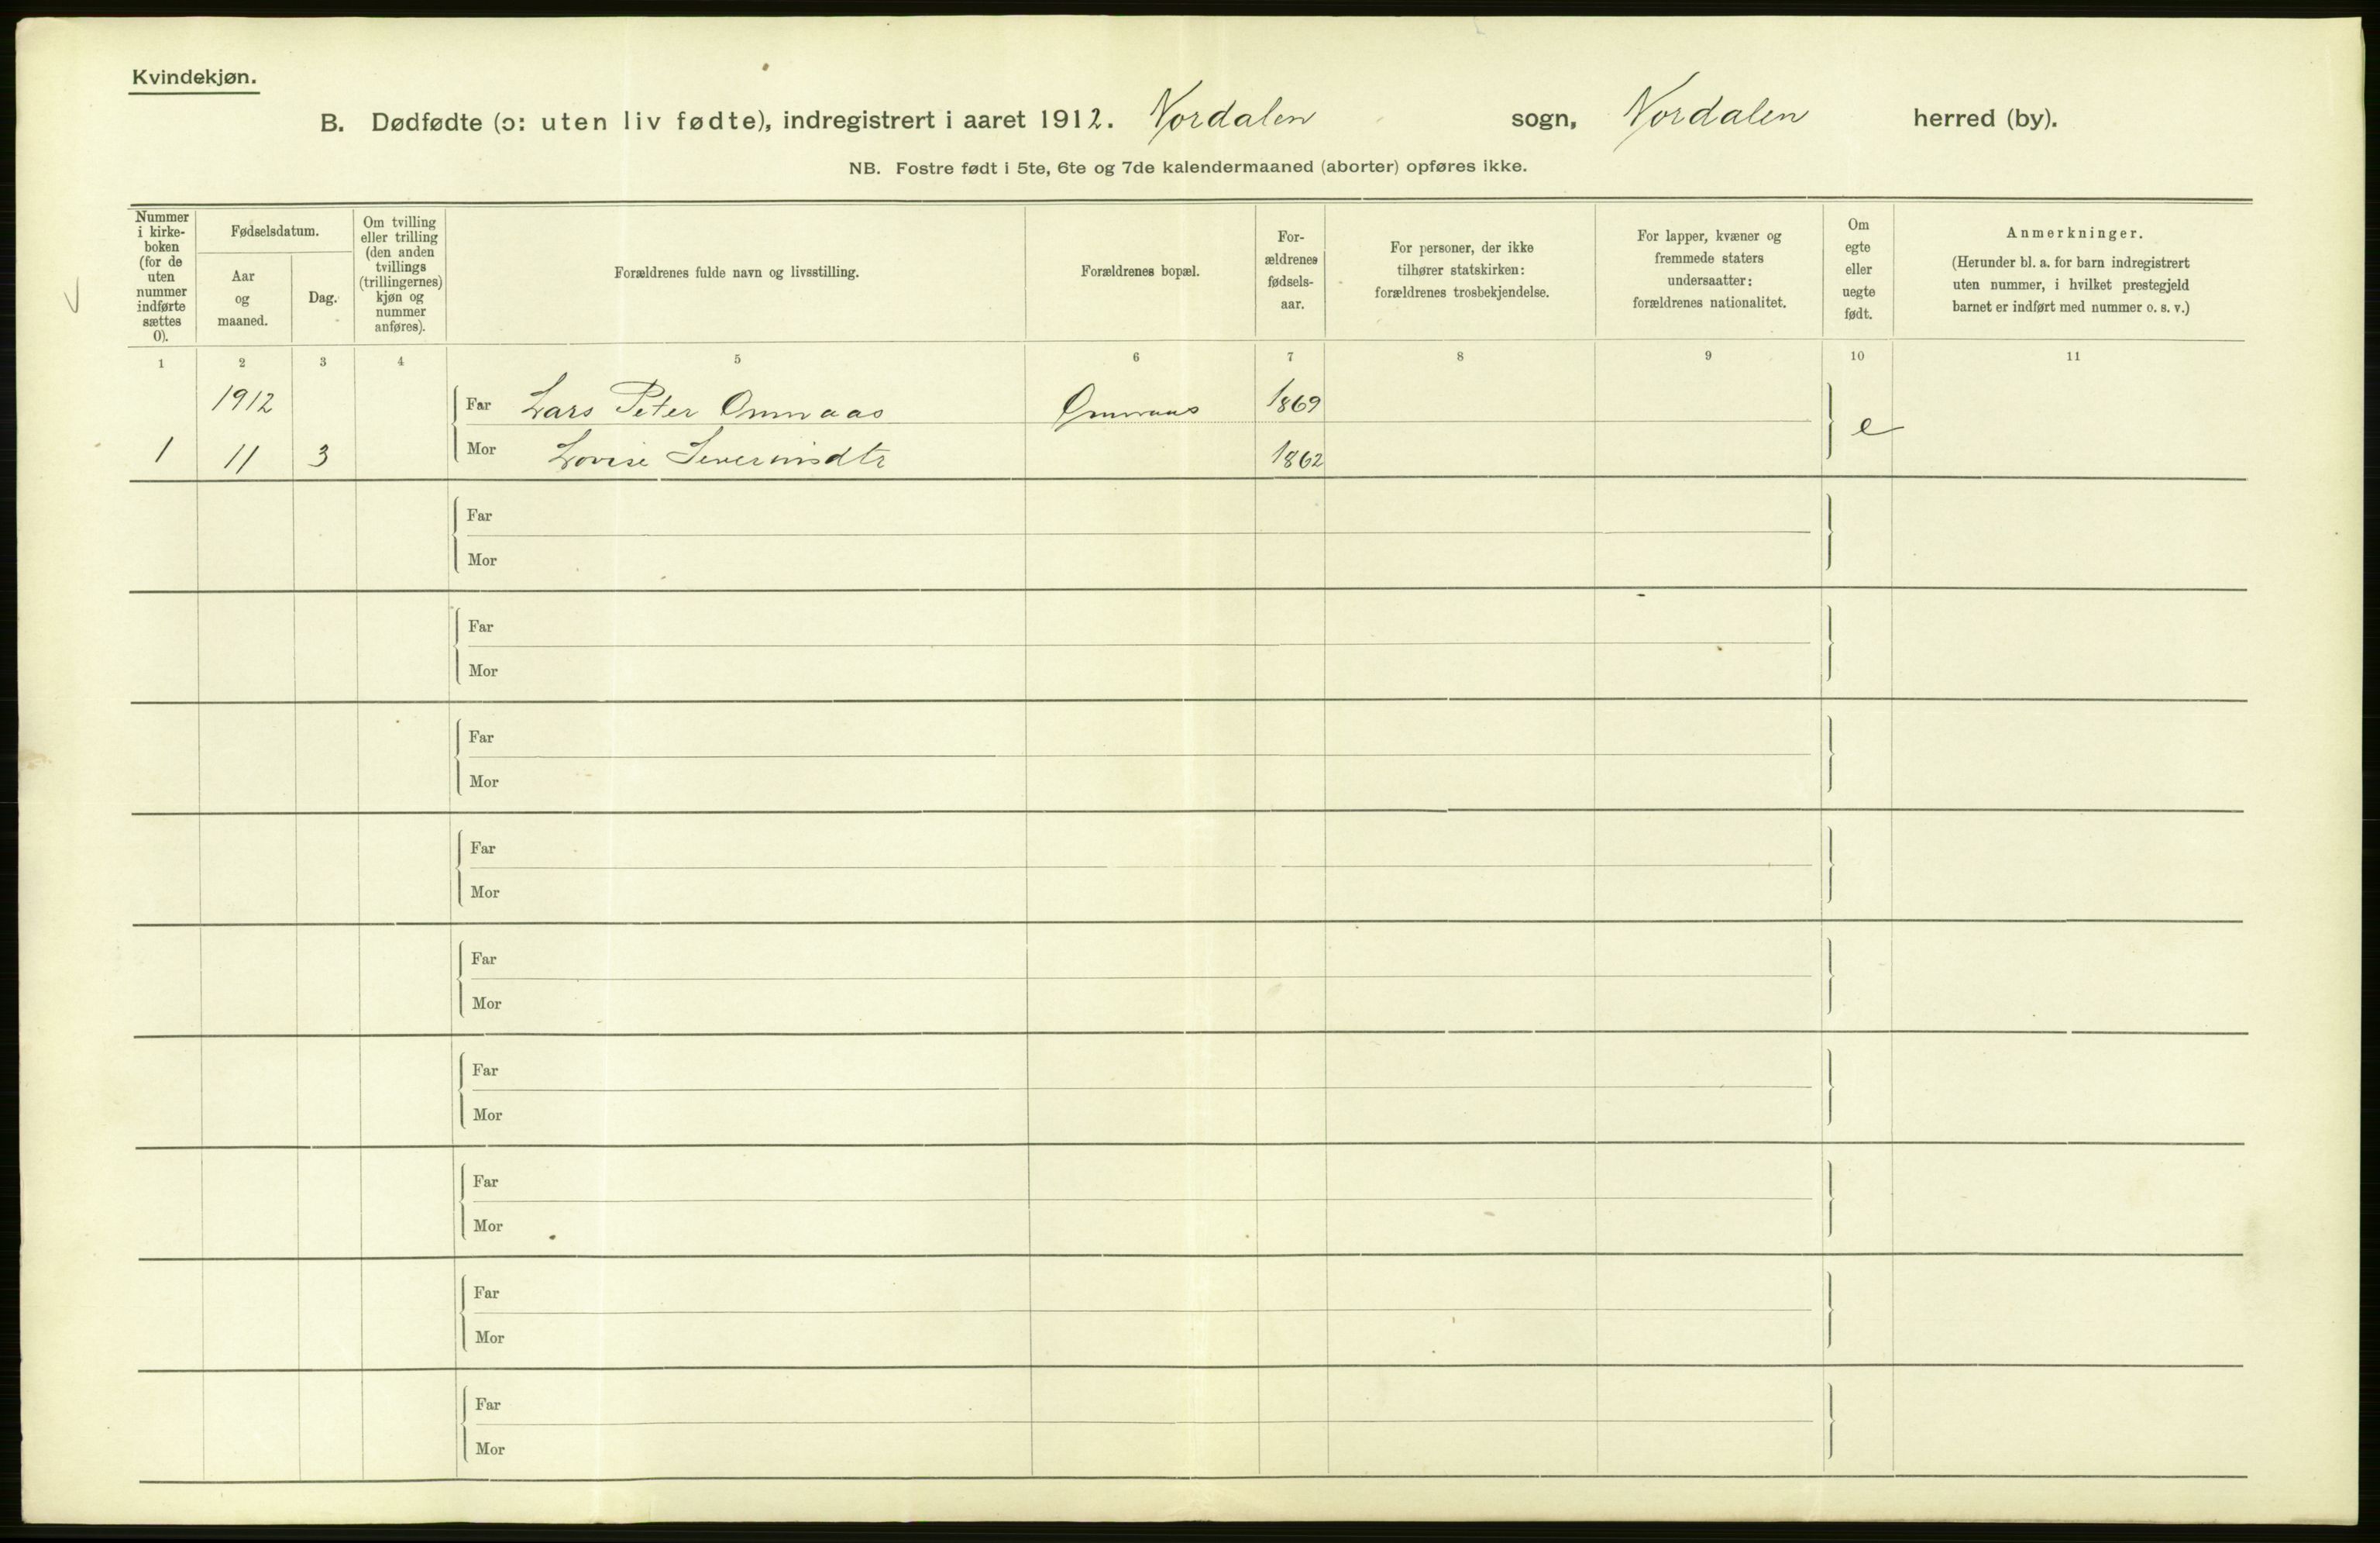 Kvindekjøn.
B. Dødfødte (ɔ: uten liv fødte), indregistrert i aaret 1912. Nordalen sogn, Nordalen herred (by).
NB. Fostre født i 5te, 6te og 7de kalendermaaned (aborter) opføres ikke.
Nummer
i kirke-
boken
(for de
uten
nummer
indførte
sættes
0).
Fødselsdatum.
Aar
og
maaned.
Dag.
Om tvilling
eller trilling
(den anden
tvillings
(trillingernes)
kjøn og
nummer
anføres).
Forældrenes fulde navn og livsstilling.
Forældrenes bopæl.
For-
ældrenes
fødsels-
aar.
For personer, der ikke
tilhører statskirken:
forældrenes trosbekjendelse.
For lapper, kvæner og
fremmede staters
undersaatter:
forældrenes nationalitet.
Om
egte
eller
uegte
født.
Anmerkninger.
(Herunder bl. a. for barn indregistrert
uten nummer, i hvilket prestegjeld
barnet er indført med nummer o. s. v.)
1 2 3 4 5 6 7 8 9 10 11
1912 Far Lars Peter Ommaas Ommaas 1869
e
1 11 3 Mor Lovise 1862
Far
Mor
Far
Mor
Far
Mor
Far
Mor
Far
Mor
Far
Mor
Far
Mor
Far
Mor
Far
Mor